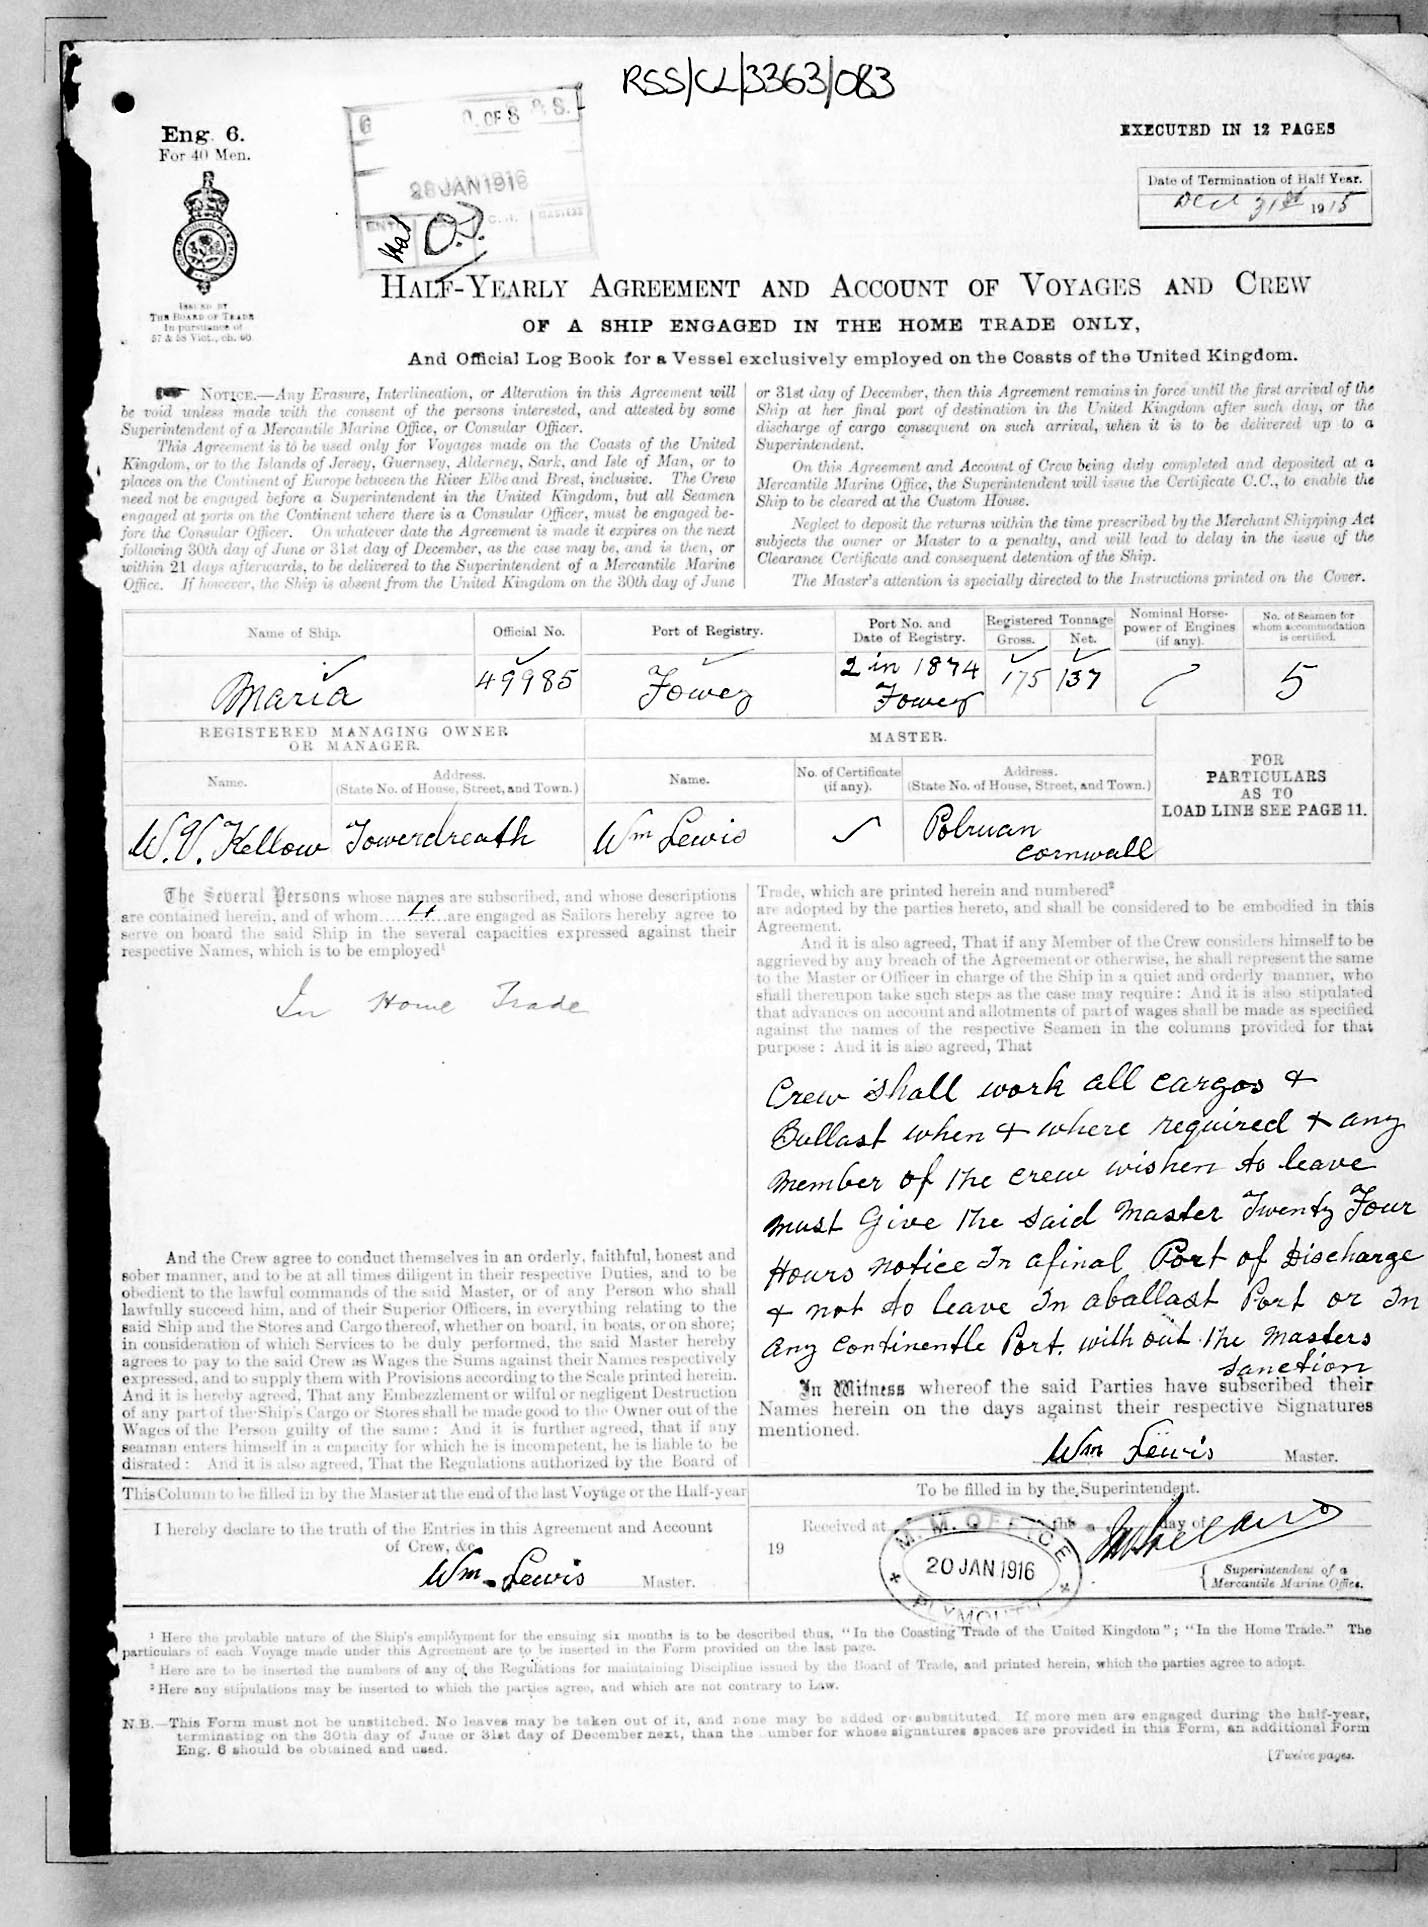 RSS/CL/3363/083
Eng. 6.
For 40 Men.
ISSUED BY
THE BOARD OF TRADE
In pursuance of
57 & 58 Vict., ch. 60.
28 JAN 1916
EXECUTED IN 12 PAGES
Date of Termination of Half Year.
Dec 31st 1915
HALF-YEARLY AGREEMENT AND ACCOUNT OF VOYAGES AND CREW
OF A SHIP ENGAGED IN THE HOME TRADE ONLY,
And Official Log Book for a Vessel exclusively employed on the Coasts of the United Kingdom.
NOTICE.—Any Erasure, Interlineation, or Alteration in this Agreement will
be void unless made with the consent of the persons interested, and attested by some
Superintendent of a Mercantile Marine Office, or Consular Officer.
This Agreement is to be used only for Voyages made on the Coasts of the United
Kingdom, or to the Islands of Jersey, Guernsey, Alderney, Sark, and Isle of Man, or to
places on the Continent of Europe between the River Elbe and Brest, inclusive. The Crew
need not be engaged before a Superintendent in the United Kingdom, but all Seamen
engaged at ports on the Continent where there is a Consular Officer, must be engaged be-
fore the Consular Officer. On whatever date the Agreement is made it expires on the next
following 30th day of June or 31st day of December, as the case may be, and is then, or
within 21 days afterwards, to be delivered to the Superintendent of a Mercantile Marine
Office. If however, the Ship is absent from the United Kingdom on the 30th day of June
or 31st day of December, then this Agreement remains in force until the first arrival of the
Ship at her final port of destination in the United Kingdom after such day, or the
discharge of cargo consequent on such arrival, when it is to be delivered up to a
Superintendent.
On this Agreement and Account of Crew being duly completed and deposited at a
Mercantile Marine Office, the Superintendent will issue the Certificate C.C., to enable the
Ship to be cleared at the Custom House.
Neglect to deposit the returns within the time prescribed by the Merchant Shipping Act
subjects the owner or Master to a penalty, and will lead to delay in the issue of the
Clearance Certificate and consequent detention of the Ship.
The Master's attention is specially directed to the Instructions printed on the Cover.
Name of Ship. Official No. Port of Registry. Port No. and Date of Registry. Registered Tonnage Gross. Net. Nominal Horse-power of Engines (if any). No. of Seamen for whom accommodation is certified.
Maria 49985 Fowey 2 in 1874 Fowey 175 137 5
REGISTERED MANAGING OWNER
OR MANAGER.
MASTER.
Name. Address. (State No. of House, Street, and Town.) Name. No. of Certificate (if any). Address. (State No. of House, Street, and Town.)
FOR
PARTICULARS
AS TO
LOAD LINE SEE PAGE 11.
W. V. Kellow Towerdreath Wm Lewis Polruan
cornwall
The Several Persons whose names are subscribed, and whose descriptions
are contained herein, and of whom 4 are engaged as Sailors hereby agree to
serve on board the said Ship in the several capacities expressed against their
respective Names, which is to be employed¹
In Home Trade
And the Crew agree to conduct themselves in an orderly, faithful, honest and
sober manner, and to be at all times diligent in their respective Duties, and to be
obedient to the lawful commands of the said Master, or of any Person who shall
lawfully succeed him, and of their Superior Officers, in everything relating to the
said Ship and the Stores and Cargo thereof, whether on board, in boats, or on shore;
in consideration of which Services to be duly performed, the said Master hereby
agrees to pay to the said Crew as Wages the Sums against their Names respectively
expressed, and to supply them with Provisions according to the Scale printed herein.
And it is hereby agreed, That any Embezzlement or wilful or negligent Destruction
of any part of the Ship's Cargo or Stores shall be made good to the Owner out of the
Wages of the Person guilty of the same: And it is further agreed, that if any
seaman enters himself in a capacity for which he is incompetent, he is liable to be
disrated: And it is also agreed, That the Regulations authorized by the Board of
Trade, which are printed herein and numbered²
are adopted by the parties hereto, and shall be considered to be embodied in this
Agreement.
And it is also agreed, That if any Member of the Crew considers himself to be
aggrieved by any breach of the Agreement or otherwise, he shall represent the same
to the Master or Officer in charge of the Ship in a quiet and orderly manner, who
shall thereupon take such steps as the case may require: And it is also stipulated
that advances on account and allotments of part of wages shall be made as specified
against the names of the respective Seamen in the columns provided for that
purpose: And it is also agreed, That
Crew shall work all cargos &
Ballast when & where required & any
member of the crew wishen to leave
must Give the said Master Twenty Four
Hours notice In afinal Port of Discharge
& not to leave In aballast Port or In
any continentle Port. with out the Masters
sanction
In Witness whereof the said Parties have subscribed their
Names herein on the days against their respective Signatures
mentioned.
Wm Lewis Master.
This Column to be filled in by the Master at the end of the last Voyage or the Half-year
I hereby declare to the truth of the Entries in this Agreement and Account
of Crew, &c.
Wm. Lewis Master.
To be filled in by the Superintendent.
Received at the day of
19
M. M. OFFICE
20 JAN 1916
PLYMOUTH
Superintendent of a
Mercantile Marine Office.
¹ Here the probable nature of the Ship's employment for the ensuing six months is to be described thus, "In the Coasting Trade of the United Kingdom"; "In the Home Trade." The
particulars of each Voyage made under this Agreement are to be inserted in the Form provided on the last page.
² Here are to be inserted the numbers of any of the Regulations for maintaining Discipline issued by the Board of Trade, and printed herein, which the parties agree to adopt.
³ Here any stipulations may be inserted to which the parties agree, and which are not contrary to Law.
N.B.—This Form must not be unstitched. No leaves may be taken out of it, and none may be added or substituted. If more men are engaged during the half-year,
terminating on the 30th day of June or 31st day of December next, than the umber for whose signatures spaces are provided in this Form, an additional Form
Eng. 6 should be obtained and used.
[Twelve pages.